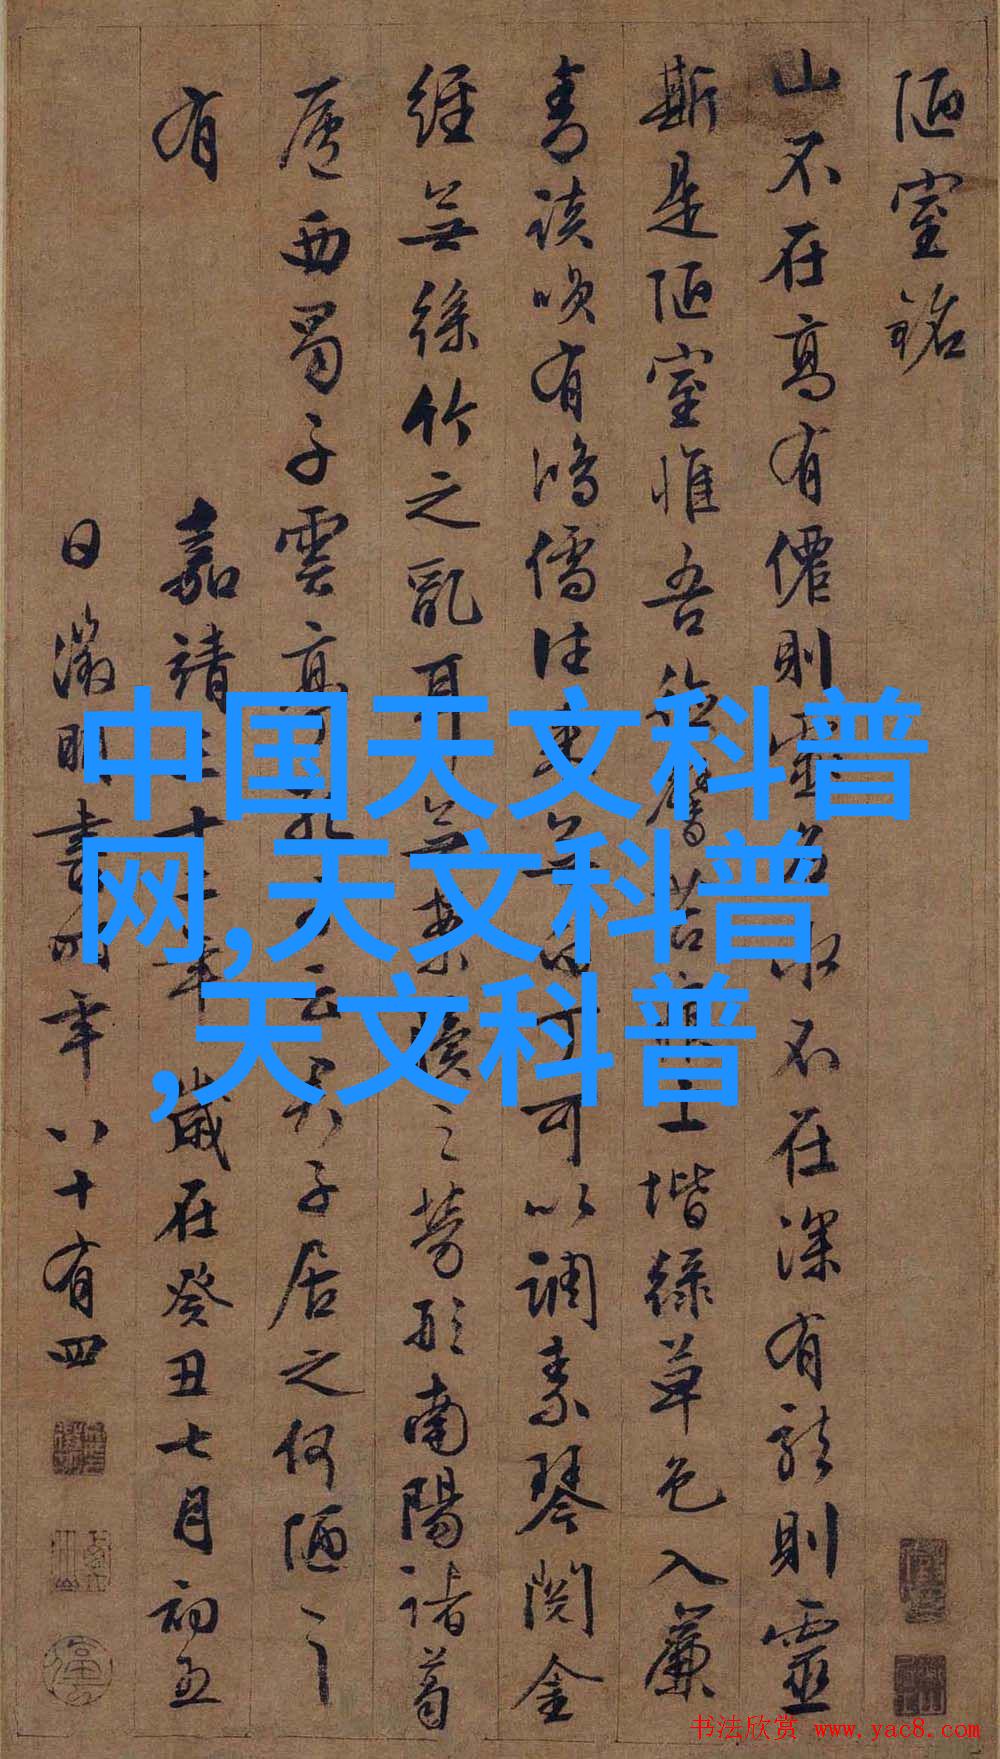 陋室銘
山不在高有僊則靈名水不在深有龍則靈
斯是陋室惟吾德馨苔痕上堦綠草色入簾
青談唉有鴻儒往來無白丁可以調素琴閱金
經無絲竹之亂耳無案牘之勞形南陽諸葛
廬西蜀子雲亭孔子云君子居之何陋之
有
嘉靖三十二年歲在癸丑七月初五
日徵明書時年八十有四
中国天文科普
网,天文科普
,天文科普
书法欣赏 www.yac8.com